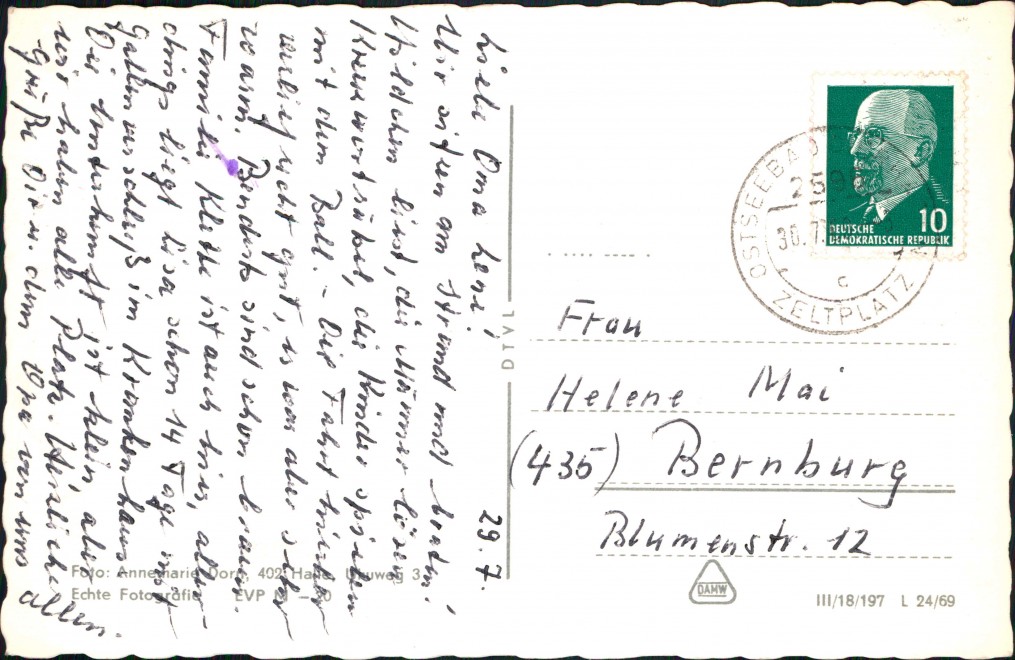 29.7.
Liebe Oma Leni!
Wir sitzen am Strand und baden!
Mäldchen liest, die Männer lösen
Kreuzworträtsel, die Kinder spielen
mit dem Ball. – Die Fahrt hierher
verlief recht gut, es war aber sehr
warm. Benders sind schon braun.
Familie Klette ist auch hier, aller-
dings liegt Lisa schon 14 Tage mit
Gallenverschluß im Krankenhaus
Die Unterkunft ist klein, aber
wir haben alle Platz. Herzliche
Grüße Dir u. dem Opa von uns
allen.
Foto: Annemarie Dorn, 402 Halle, 3
Echte Fotografie EVP M
DTVL
DEUTSCHE
DEMOKRATISCHE REPUBLIK
10
OSTSEEBAD
30.7.
c
ZELTPLATZ
Frau
Helene Mai
(435) Bernburg
Blumenstr. 12
DAMW
III/18/197 L 24/69